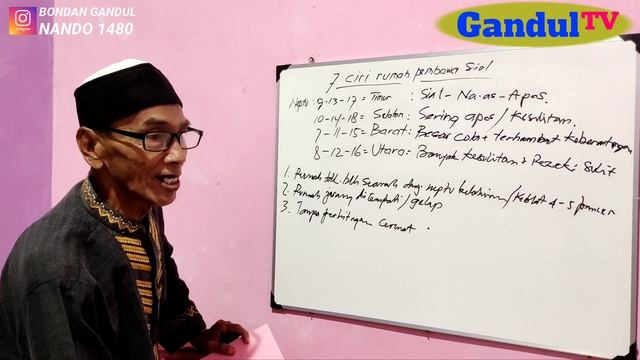 BONDAN GANDUL
NANDO 1480
GandulTV
7 ciri rumah pembawa sial
Neptu: 9-13-17 = Timur : Sial - Na-as - Apes.
10-14-18 = Selatan : Sering apes / Kesulitan.
7-11-15 = Barat : Besar coba + terhambat
8-12-16 = Utara = Banyak kesulitan + Rezeki Sulit
1. Rumah tdk blh Searah dng neptu kelahiran / Keblat 4-5 pancer
2. Rumah jarang di tempati / gelap
3. Tanpa perhitungan cermat.